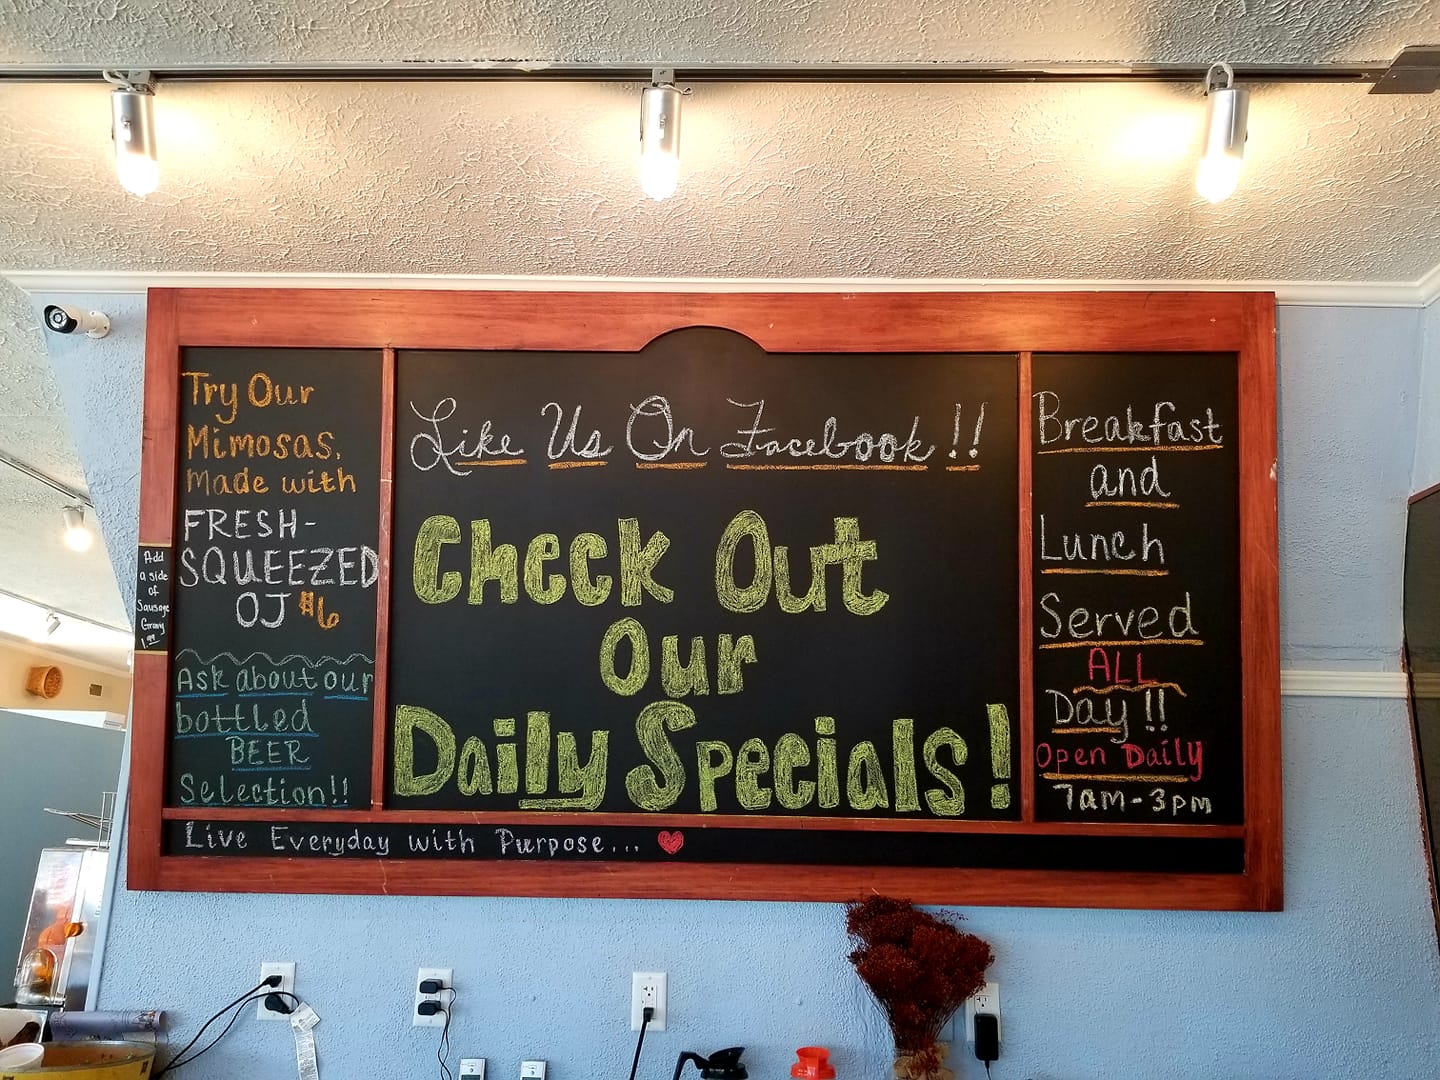 Try Our
Mimosas.
Made with
FRESH-
SQUEEZED
OJ $6
Ask about our
bottled
BEER
Selection!!
Add
a side
of
Sausage
Gravy
1.99
Like Us On Facebook!!
Check Out
Our
Daily Specials!
Breakfast
and
Lunch
Served
ALL
Day!!
Open Daily
7am-3pm
Live Everyday with Purpose...